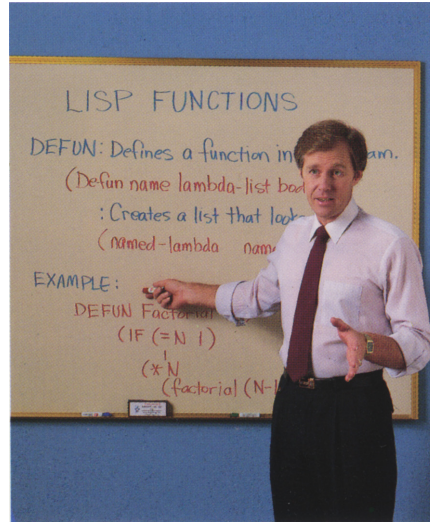 LISP FUNCTIONS
DEFUN: Defines a function in am.
(Defun name lambda-list bod
: Creates a list that look
(named-lambda nam
EXAMPLE:
DEFUN Factorial
(IF (=N 1)
1
(*N
(factorial (N-1